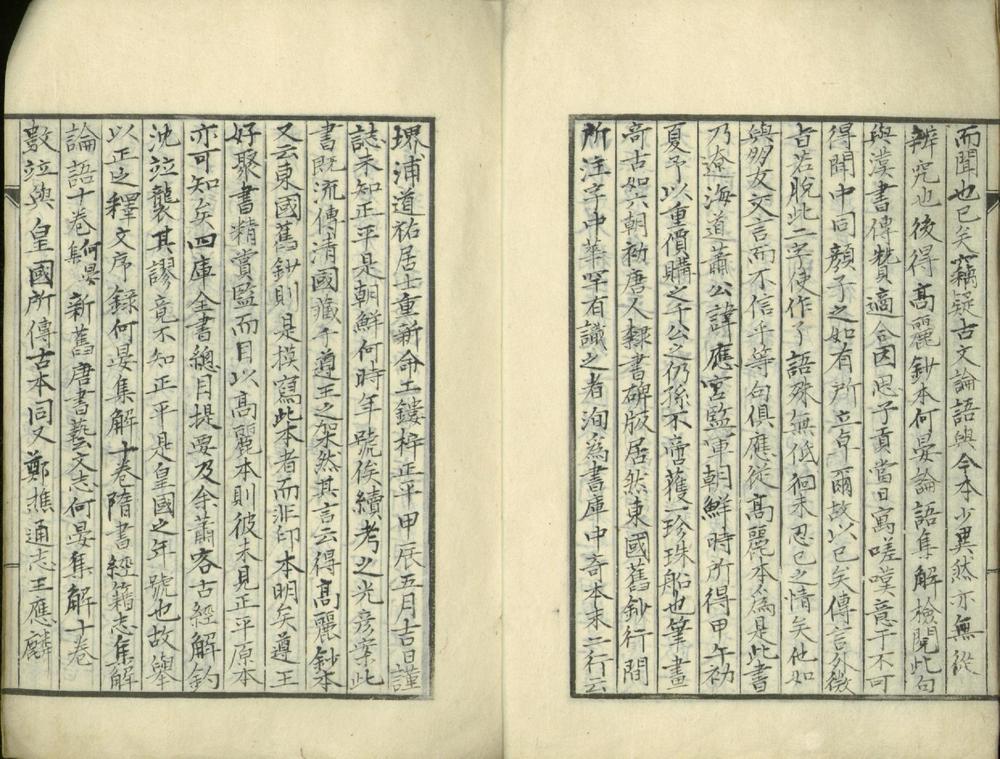 而聞也已矣竊疑古文論語與今本少異然亦無從
辨究也後得高麗鈔本何晏論語集解檢閱此句
與漢書傳贊適合因思子貢當日寓嗟嘆意于不可
得聞中同顏子之如有所立卓爾故以已矣傳言外微
旨若脫此二字便作了語殊無低徊未忍已之情矣他如
與朋友交言而不信乎等句俱應從高麗本為是此書
乃遼海道蕭公諱應宮監軍朝鮮時所得甲午初
夏予以重價購之于公之仍孫不啻獲一珍珠船也筆畫
奇古如六朝初唐人隸書碑版居然東國舊鈔行間
所注字中華罕有識之者洵爲書庫中奇本末二行云
堺浦道祐居士重新命工鏤梓正平甲辰五月吉日謹
誌未知正平是朝鮮何時年號俟續考之光彥案此
書既流傳清國藏于遵王之架然其言云得高麗鈔本
又云東國舊鈔則是摸寫此本者而非印本明矣遵王
好聚書精賞監而目以高麗本則彼未見正平原本
亦可知矣四庫全書總目提要及余蕭客古經解鈎
沈竝襲其謬竟不知正平是皇國之年號也故舉
以正之釋文序錄何晏集解十卷隋書經籍志集解
論語十卷何晏集新舊唐書藝文志何晏集解十卷
數竝與 皇國所傳古本同又鄭樵通志王應麟